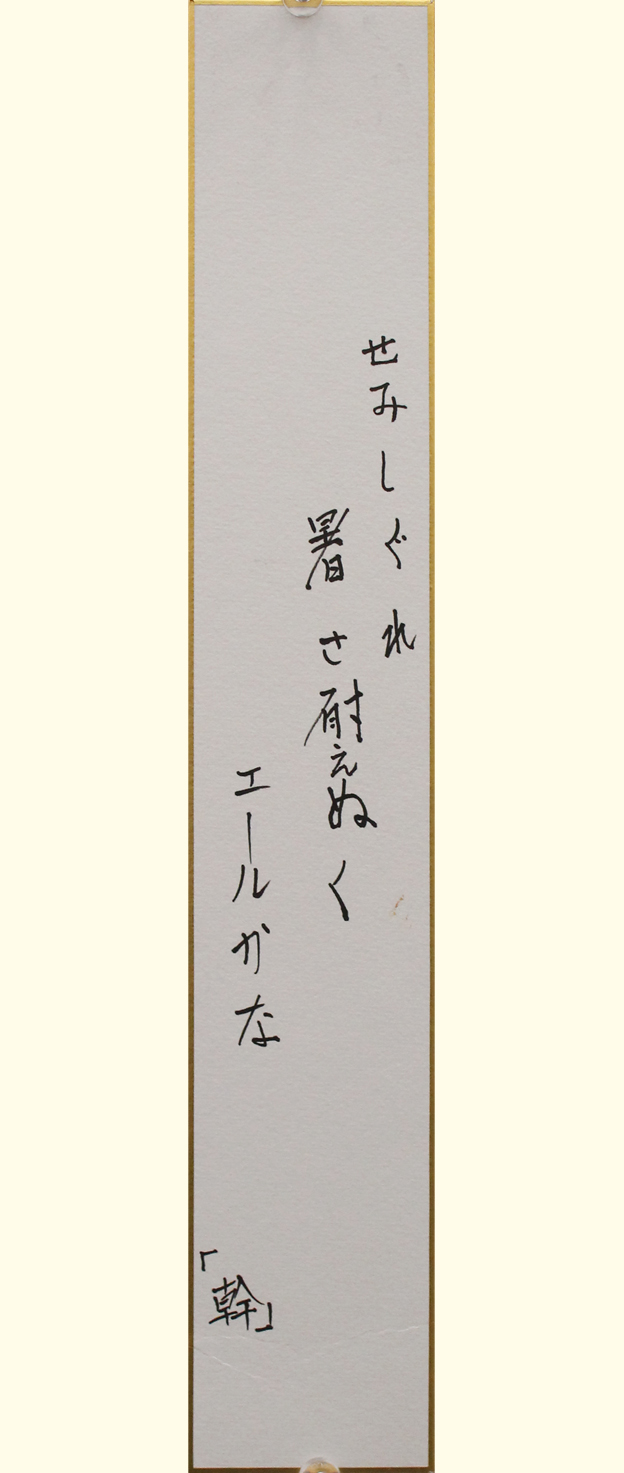 せみしぐれ
暑さ耐えぬく
エールかな
「幹」